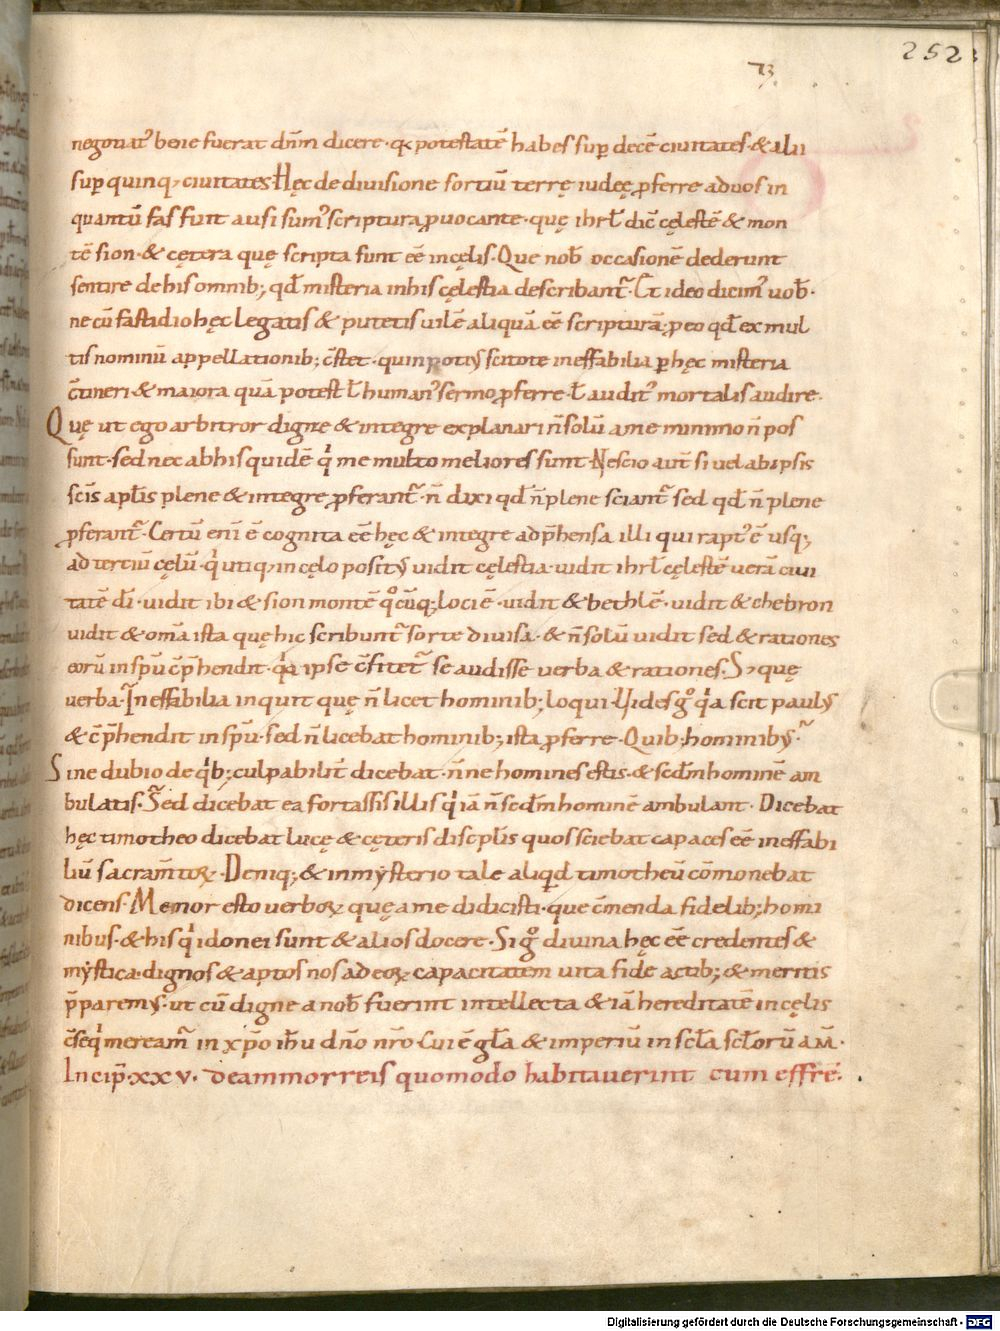 252
73
negotiat᷒ bene fuerat dn̄m dicere· q̨ potestatē habes sup̱ decē ciuitates· & alii
sup̱ quinq; ciuitates· Hęc de diuisione sortiū terrę iudeę ꝓferre ad uos in
quantū fas fuit ausi sum᷒ scriptura ꝓuocante· quę ihrl̄ dic̄ cęlestē & mon
tē sion· & cętera quę scripta sunt eē in cęlis· Que nob̄ occasionē dederunt
sentire de his omnib; qd̄ misteria in his cęlestia describant᷑· Et ideo dicim᷒ uob̄·
ne cū fastidio hęc legatis & putetis uilē aliquā eē scripturā; ꝓ eo qd̄ ex mul
tis nominū appellationib; c̄stet· quin poti᷒ scitote ineffabilia ꝑ hęc misteria
c̄tineri· & maiora quā potest ł human᷒ sermo ꝓferre· ł audit᷒ mortalis audire·
Quę ut ego arbitror digne & integre explanari n̄ solū a me minimo n̄ pos
sunt· sed nec ab his quidē qͥ me multo meliores sunt· Nescio aut̄ si uel ab ipsis
sc̄is apl̄is plene & integre ꝓferant᷑· n̄ dixi qd̄ n̄ plene sciant᷑ sed qd̄ n̄ plene
ꝓferant᷑· Certū enī ē cognita eē hęc & integre adp̄hensa illi qui rapt᷒ ē usq;
ad tertiū cęlū· qͥ utiq; in cęlo posit᷒ uidit cęlestia· uidit ihrl̄ cęlestē uerā ciui
tatē dī· uidit ibi & sion montē qͦcūq; loci ē· uidit & bethlē· uidit & chebron
uidit & om̄a ista quę hic scribunt᷑ sorte diuisa· & n̄ solū uidit sed & rationes
eorū in sp̄u c̄p̄hendit· qͣa ipse c̄fitet᷑ se audisse uerba & rationes· S; quę
uerba· Ineffabilia inquit quę n̄ licet hominib; loqui· Uides gͦ qͣa scit paul᷒
& c̄p̄hendit in sp̄u· sed n̄ licebat hominib; ista ꝓferre· Quib; hominib᷒·
Sine dubio de qͥb; culpabilit̄ dicebat· n̄ne homines estis· & scd̄m hominē am
bulatis· Sed dicebat ea fortassis illis qͥ iā n̄ scd̄m hominē ambulant· Dicebat
hęc timotheo dicebat lucę & cęteris discipl̄is quos sciebat capaces eē ineffabi
liū sacram̄toꝝ· Deniq; & in mysterio tale aliqͥd timotheū cōmonebat
dicens· Memor esto uerboꝝ quę a me didicisti· que c̄menda fidelib; homi
nibus· & his qͥ idonei sunt & alios docere· Si gͦ diuina hęc eē credentes &
mystica· dignos & aptos nos ad eoꝝ capacitatem uita fide actib; & meritis
p̄parem᷒· ut cū digne a nob̄ fuerint intellecta & iā hereditatē in cęlis
c̄seqͥ meream᷑ in xp̄o ih̄u dn̄o nr̄o· Cui ē gl̄a & imperiū in scl̄a scl̄orū am̄·
Incip̄· xxv· de ammorreis quomodo habitauerint cum effrē·
Digitalisierung gefördert durch die Deutsche Forschungsgemeinschaft - DFG